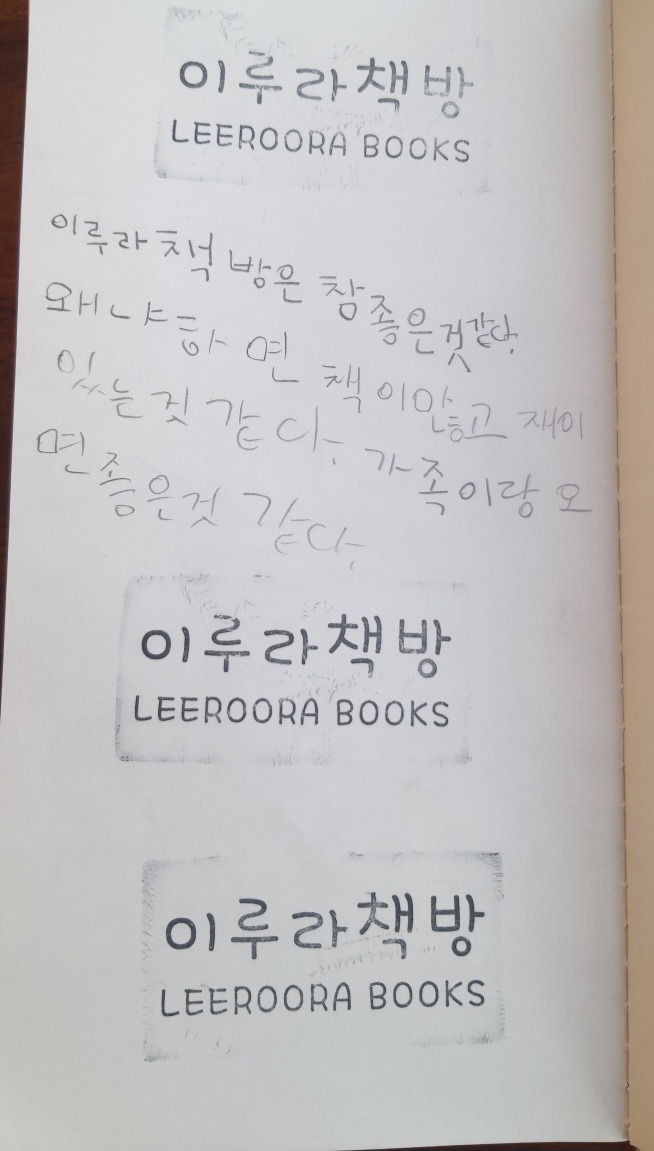 이루라책방
LEEROORA BOOKS
이루라 책 방은 참좋은것같다.
왜냐하면 책이많고 재이
있는것 같다. 가족이랑 오
면좋은것 같다.
이루라책방
LEEROORA BOOKS
이루라책방
LEEROORA BOOKS